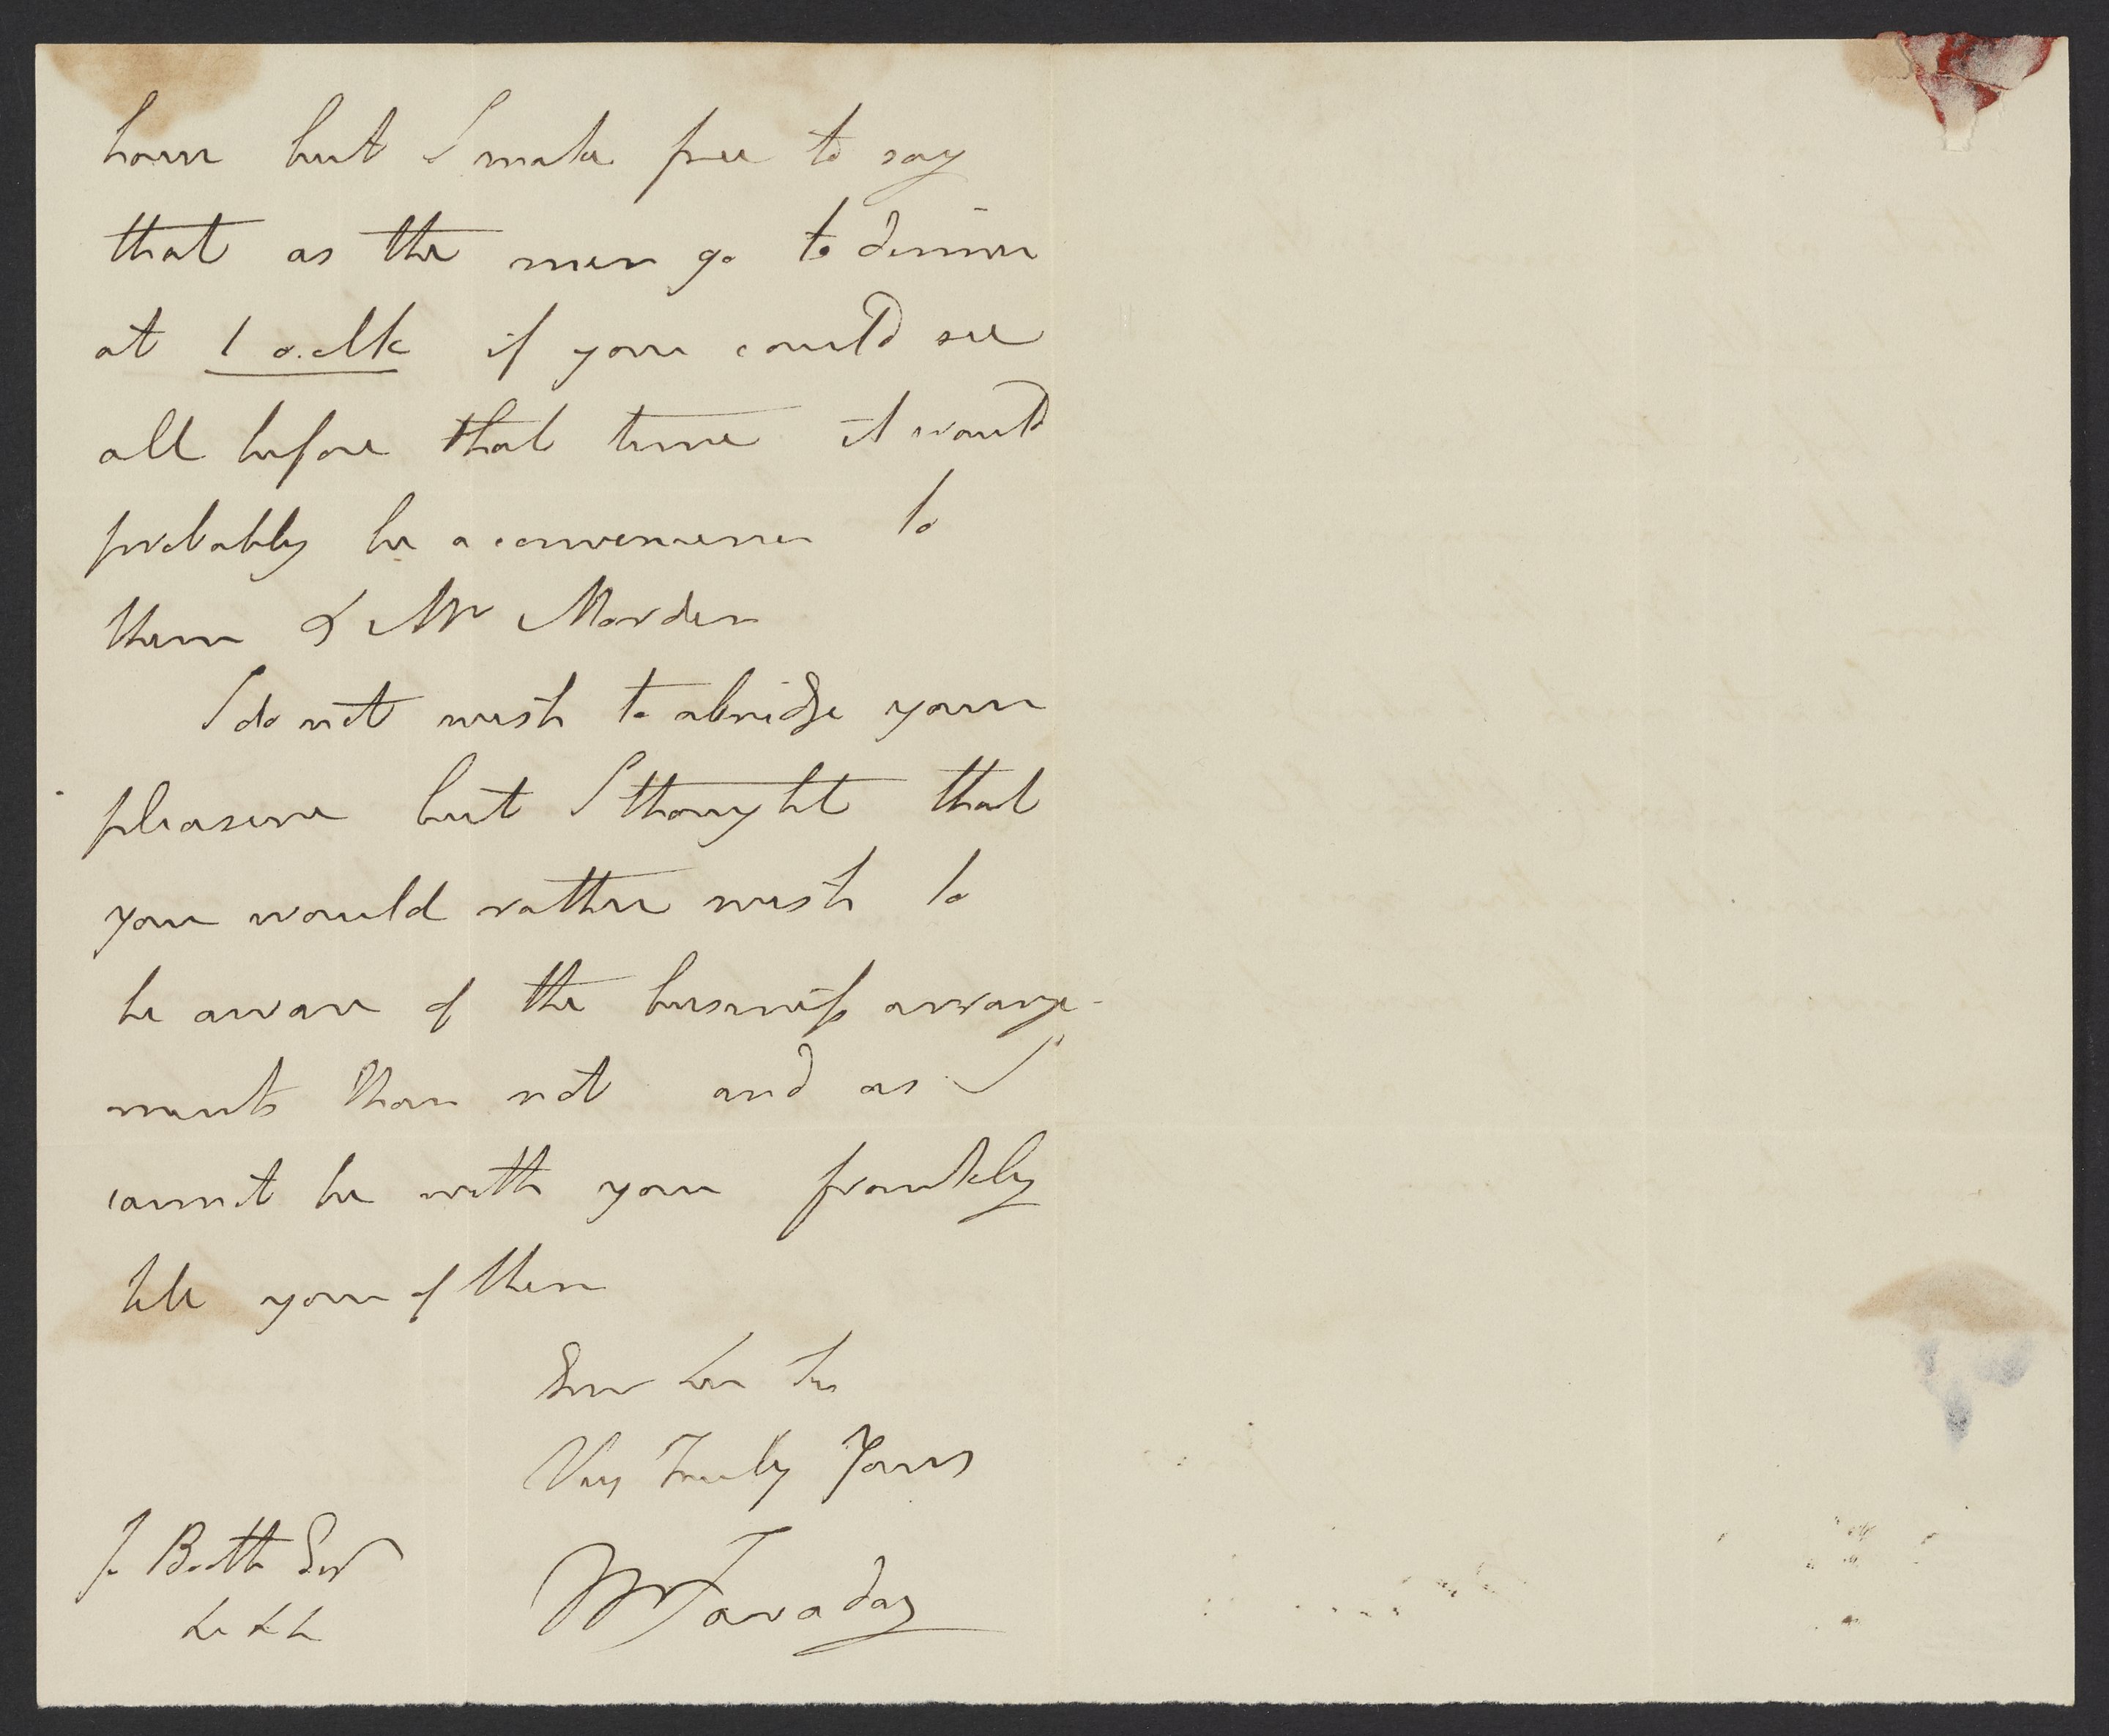 hour but I make free to say
that as the men go to dinner
at 1 o.clk if you could see
all before that time it would
probably be a convenience to
them & Mr Marden
I do not wish to abridge your
pleasure but I thought that
you would rather wish to
be aware of the business arrange-
ments than not and as I
cannot be with you frankly
tell you of them
Very Truly Yours
M Faraday
J. Booth Esqr
&c &c &c